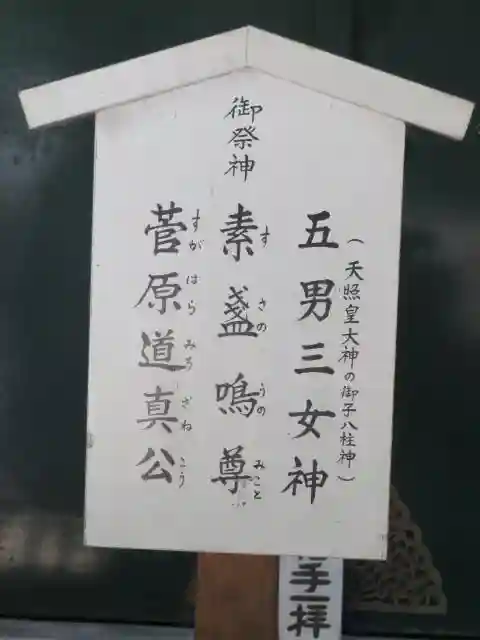 御祭神
(天照皇大神の御子八柱神)
五男三女神
素盞嗚尊
すさのうのみこと
菅原道真公
すがはらみちざねこう
手一拝